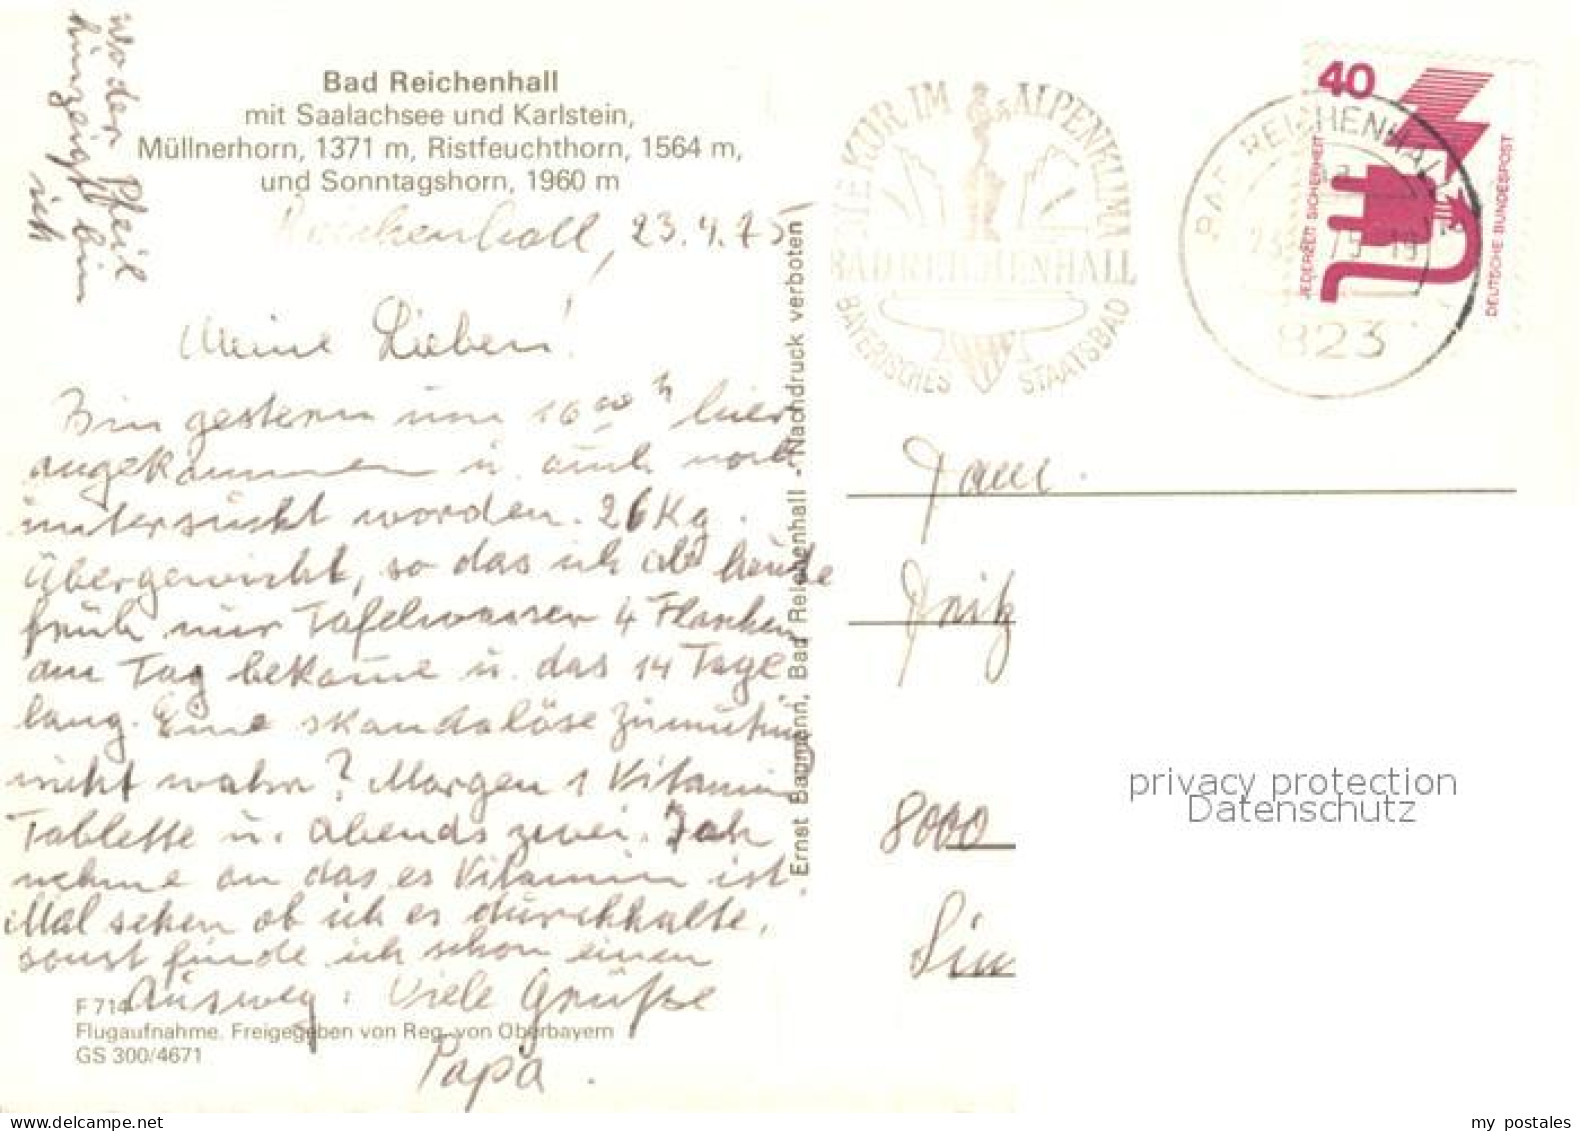 wo der Pfeil
hinzeigt bin
ich
Bad Reichenhall
mit Saalachsee und Karlstein,
Müllnerhorn, 1371 m, Ristfeuchthorn, 1564 m,
und Sonntagshorn, 1960 m
Reichenhall, 23.4.75
Meine Lieben!
Bin gestern um 16 00 h hier
angekommen u. auch noch
untersucht worden. 26 Kg.
Übergewicht, so das ich ab heute
früh nur Tafelwasser 4 Flaschen
am Tag bekome u. das 14 Tage
lang. Eine skandalöse Zumutung
nicht wahr? Morgen 1 Vitamin
Tablette u. abends zwei. Ich
nehme an das es Vitamin ist.
Mal sehen ob ich es durchhalte,
sonst finde ich schon einen
Ausweg. Viele Grüße
Papa.
F 714
Flugaufnahme. Freigegeben von Reg. von Oberbayern
GS 300/4671
Ernst Baumann, Bad Reichenhall - Nachdruck verboten
DIE KUR IM ALPENKLIMA
BAD REICHENHALL
BAYERISCHES STAATSBAD
BAD REICHENHALL
23. 75-19
823
40
JEDERZEIT SICHERHEIT
DEUTSCHE BUNDESPOST
Fam.
Fritz
8000
privacy protection
Datenschutz
my postales